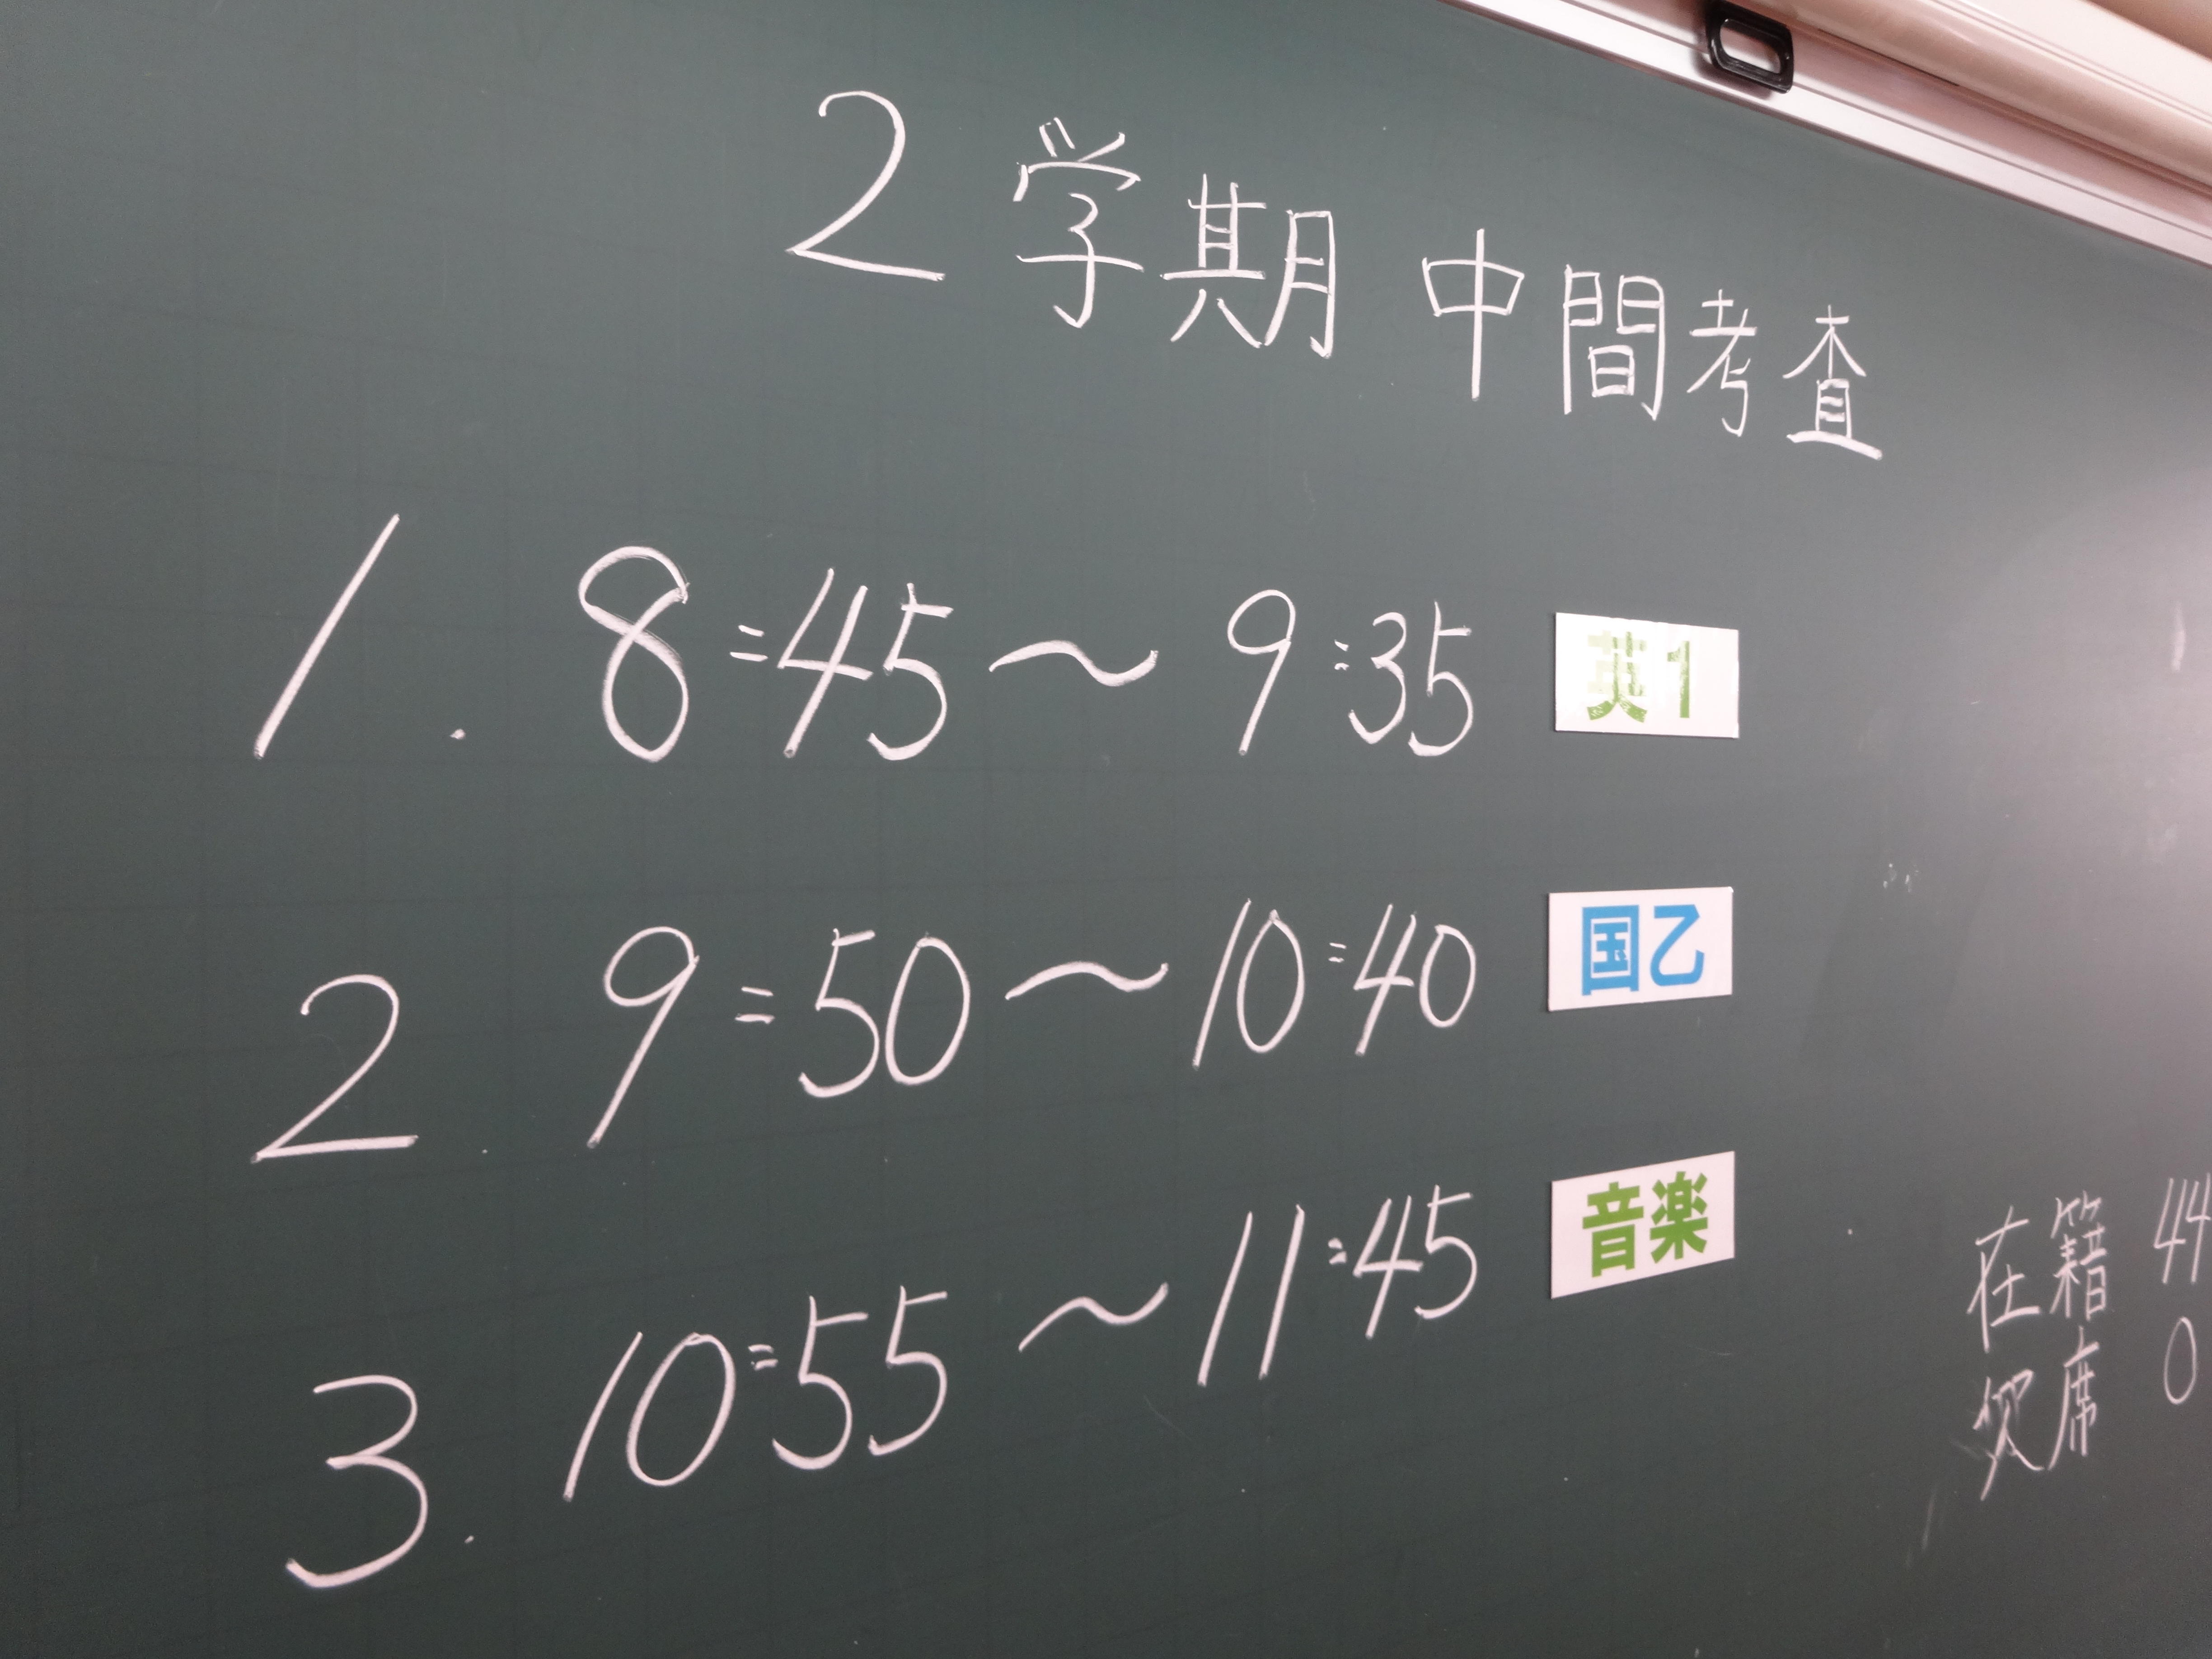 2学期 中間考査
1. 8:45〜9:35 英1
2. 9:50〜10:40 国乙
3. 10:55〜11:45 音楽
在籍 44
欠席 0